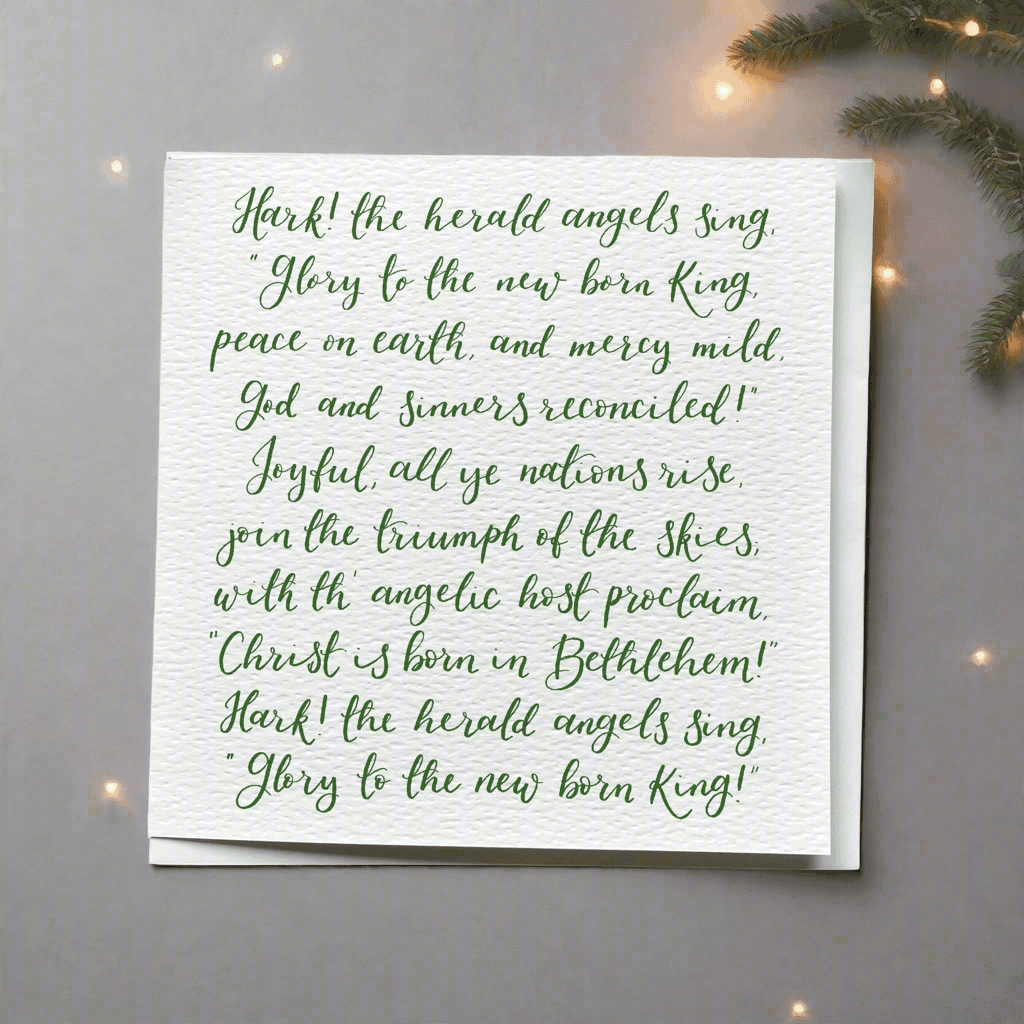 Hark! the herald angels sing,
"Glory to the new born King,
peace on earth, and mercy mild,
God and sinners reconciled!"
Joyful, all ye nations rise,
join the triumph of the skies;
with th' angelic host proclaim,
"Christ is born in Bethlehem!"
Hark! the herald angels sing,
"Glory to the new born King!"